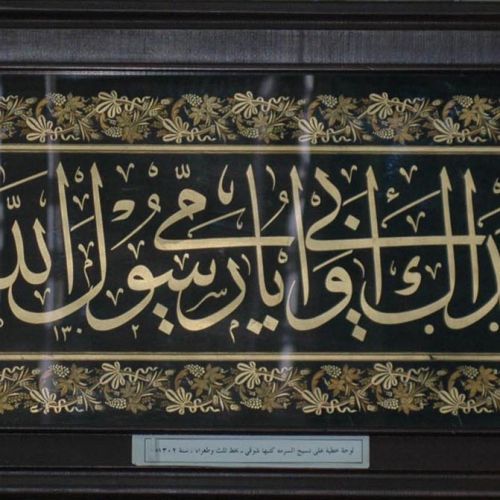 داك أبي وأمي يا رسول الله
١٣٠٢
لوحة خطية على نسيج السرمه كتبها شوقي ـ بخط ثلث وطغراء ـ سنة ١٣٠٢هـ